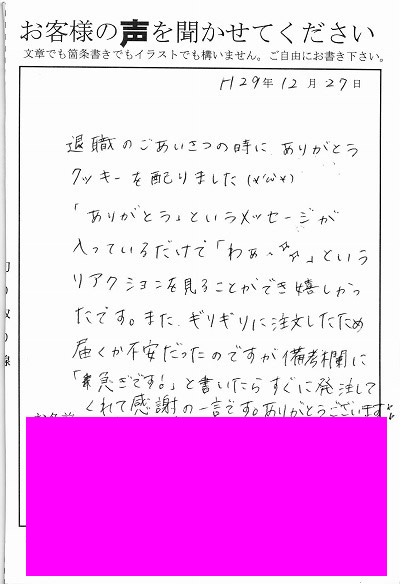 お客様の声を聞かせてください
文章でも箇条書きでもイラストでも構いません。ご自由にお書き下さい。
H29年12月27日
退職のごあいさつの時に、ありがとう
クッキーを配りました(*'ω'*)
「ありがとう」というメッセージが
入っているだけで「わぁ、☆☆」という
リアクションを見ることができ嬉しかっ
たです。また、ギリギリに注文したため
届くか不安だったのですが備考欄に
「急ぎです!」と書いたらすぐに発注して
くれて感謝の一言です。ありがとうございます